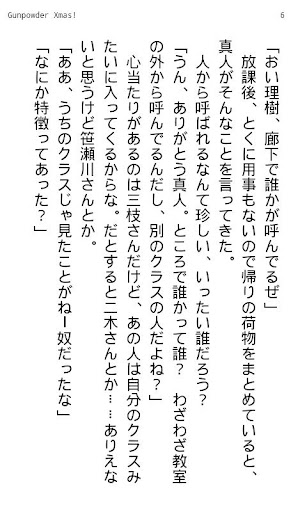 Gunpowder Xmas!
6
「おい理樹、廊下で誰かが呼んでるぜ」
放課後、とくに用事もないので帰りの荷物をまとめていると、
真人がそんなことを言ってきた。
人から呼ばれるなんて珍しい、いったい誰だろう？
「うん、ありがとう真人。ところで誰かって誰？　わざわざ教室
の外から呼んでるんだし、別のクラスの人だよね？」
心当たりがあるのは三枝さんだけど、あの人は自分のクラスみ
たいに入ってくるからな。だとすると二木さんとか……ありえな
いと思うけど笹瀬川さんとか。
「ああ、うちのクラスじゃ見たことがねー奴だったな」
「なにか特徴ってあった？」